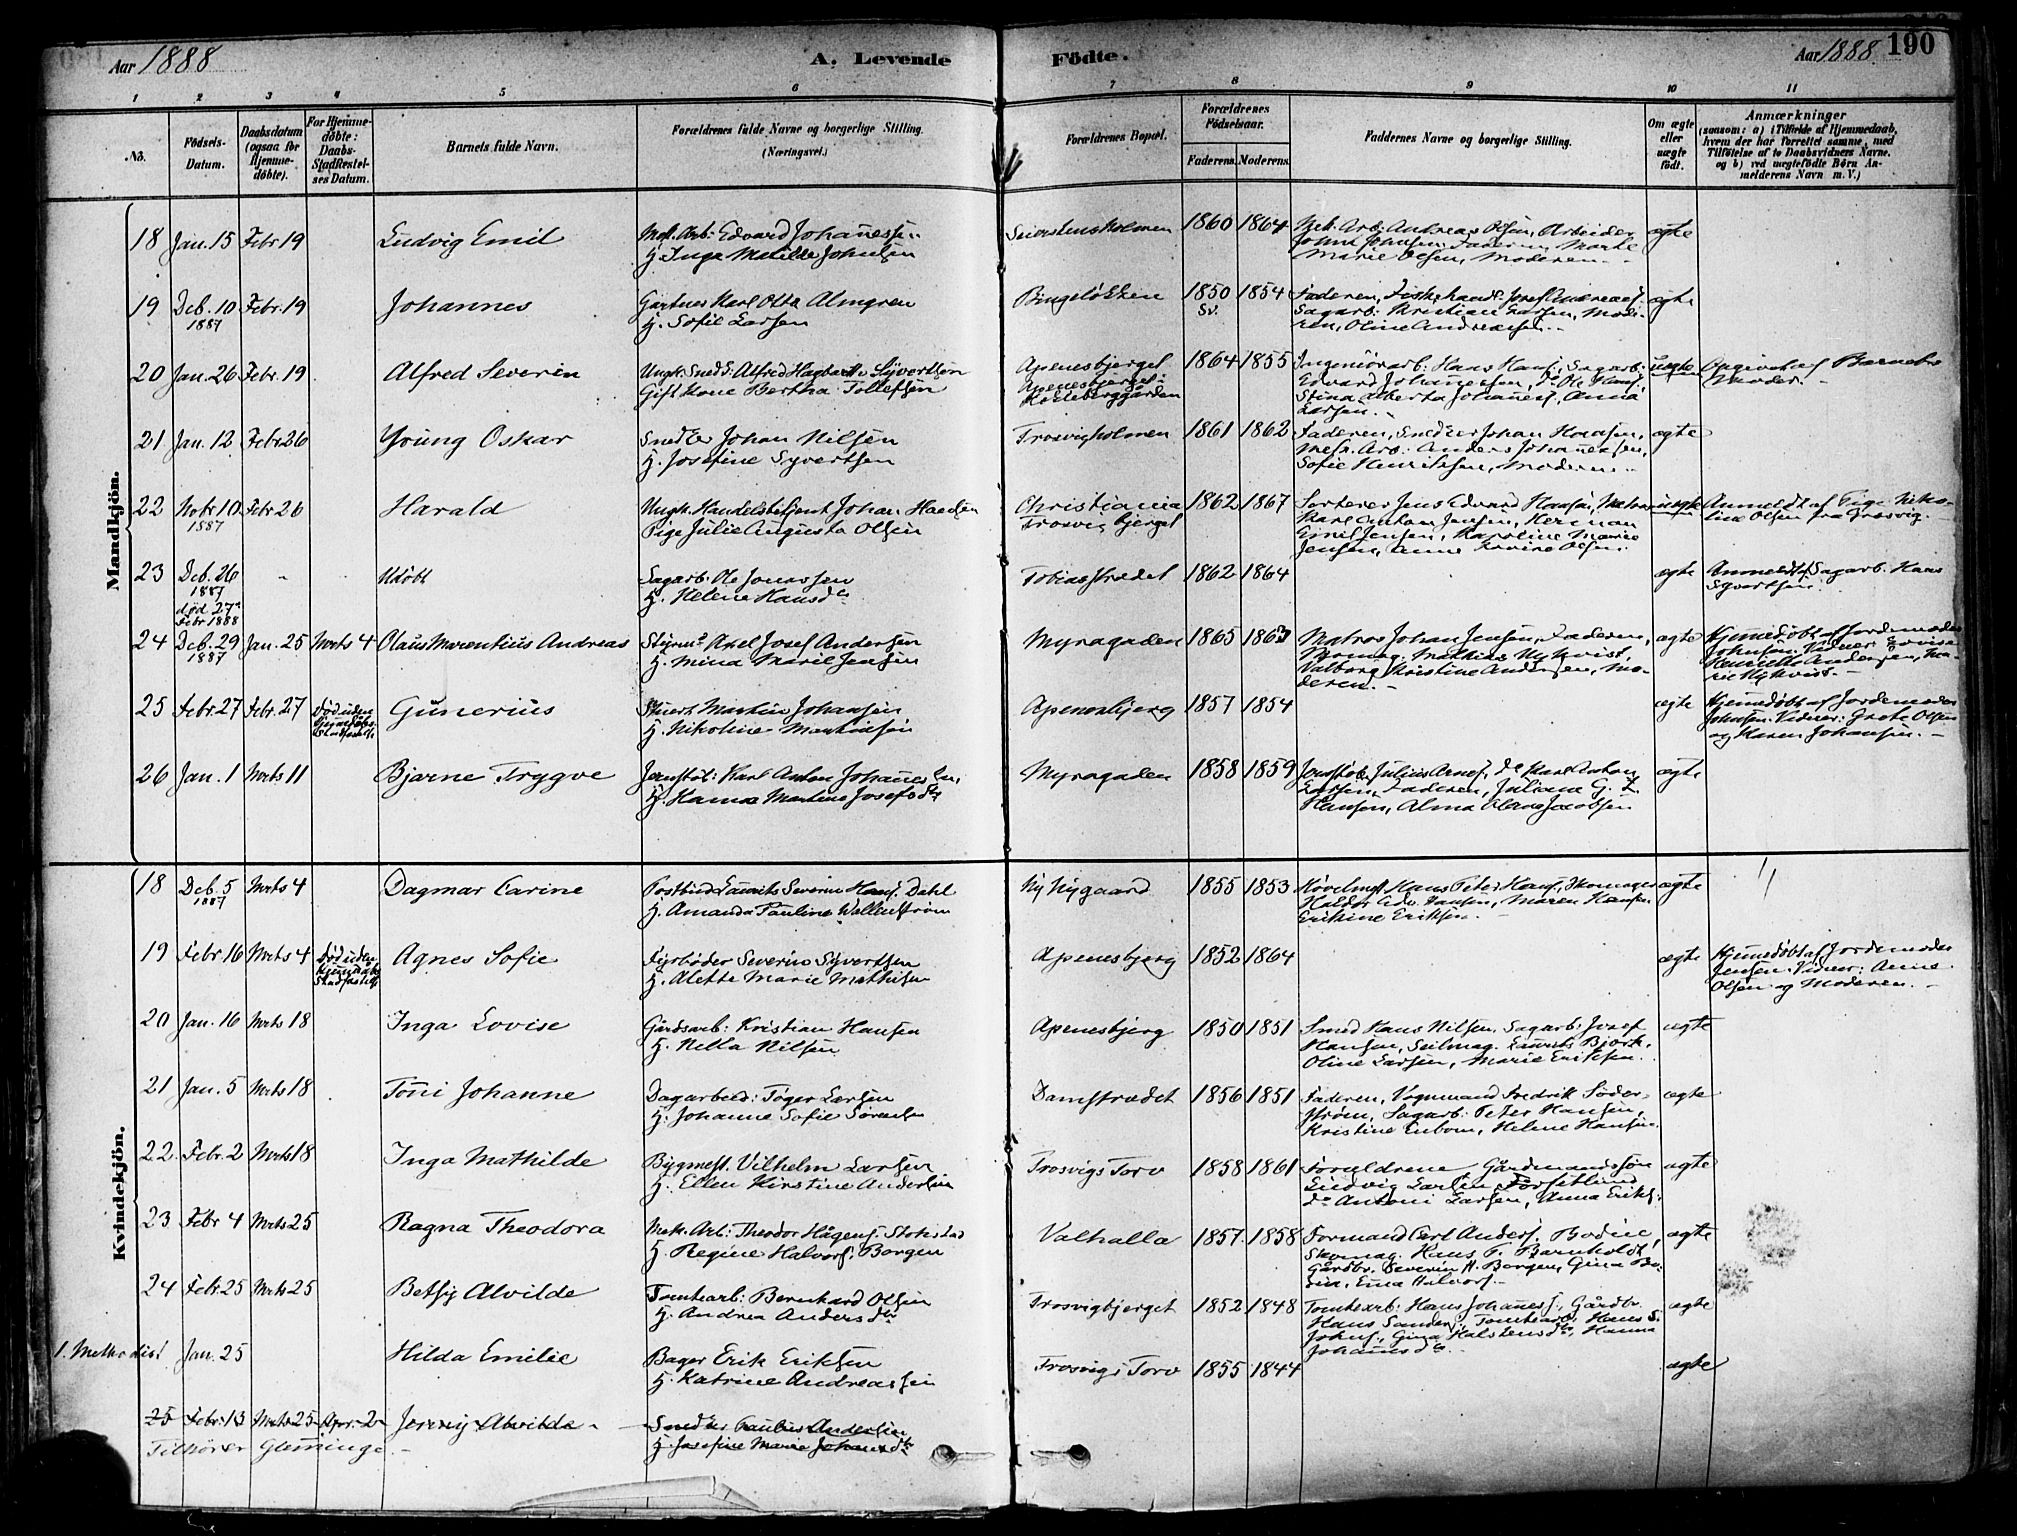 Aar 1888
A. Levende Fødte.
Aar 1888 190
1 2 3 4 5 6 7 8 9 10 11
No. Fødsels-Datum. Daabsdatum (ogsaa for Hjemmedøbte). For Hjemmedøbte: Daabs-Stadfæstelses Datum. Barnets fulde Navn. Forældrenes fulde Navne og borgerlige Stilling. (Næringsvei.) Forældrenes Bopæl. Forældrenes Fødselsaar. Faderens. Moderens. Faddernes Navne og borgerlige Stilling. Om ægte eller uægte født. Anmærkninger (saasom: a) i Tilfælde af Hjemmedaab, hvem der har forrettet samme, med Tilføielse af to Daabsvidners Navne. og b) ved uægtefødte Børn Anmelderens Navn m. V.)
Mandkjön.
18 Jan. 15 Febr 19 Ludvig Emil Mek. Arb: Edvard Johanessen Seierstensholmen 1860 1864 Mek. Arb: Andreas Olsen, Arbeider ægte
H. Inga Matilde Johnsen Johan Johansen, Faderen, Marte
Marie Olsen, Moderen.
19 Deb. 10 Febr. 19 Johannes Gartner Karl Otto Almgren Bingeløkken 1850 1854 Faderen, Fiskehandl. Josef Andreass. ægte
1887 H. Sofie Larsen Sv. Sagarb: Kristian Larsen, Moderen, Oline Andreasen.
20 Jan. 26 Febr. 19 Alfred Severin Ungk. Snedk: Alfred Hagbart Syvertsen Apenesbjerget 1864 1855 Ingeniörarb: Hans Hans., Sagarb: uægte Opgivet af Barnets
Gift Kone Bertha Tollefsen Apenesbjerget: Edvard Johannessen, do Ole Hans., Moder.
Stina Alberta Johaness., Anna
Larsen.
21 Jan. 12 Febr 26 Young Oskar Snedker Johan Nilsen Trosvigholmen 1861 1862 Faderen, Snedker Johan Hansen, ægte
H. Josefine Syvertsen Mek. Arb: Anders Johannessen,
Sofie Henriksen, Moderen.
22 Nobr 10 Febr 26 Harald Ungk. Handelsbetjent Johan Hansen Christiania 1862 1867 Sorterer Jens Edvard Hansen, Matros uægte Anmeldt af Pige Nikoline
1887 Pige Julie Augusta Olsen Trosvigbjerget Karl Anton Jensen, Herman Olsen fra Trosvig.
Emil Jensen, Karoline Marie
Jensen, Anne Olsen.
23 Deb. 26 - Udøbt Sagarb. Ole Jonassen Tobiasstrædet 1862 1864 ægte Anmeldt af Sagarb. Hans
1887 H. Helene Hansdtr Syvertsen.
död 27de
Febr 1888
24 Deb. 29 Jan. 25 Marts 4 Olaus Marentius Andreas Styrmd Axel Josef Andersen Myragaden 1865 1863 Matros Johan Jensen, Faderen, ægte Hjemmedøbt af Jordemoder
1887 H. Mina Marie Jensen Mathias Nykvist, Johnsen. Vidner: Lovise
Valborg Kristine Andersen, Moderen. Henriette Andersen, Marie Nykvist.
25 Febr. 27 Febr. 27 Död uden Gunerius Stuert Martin Johansen Apenesbjerg 1857 1854 ægte Hjemmedøbt af Jordemoder
Hjemmedaabs- H. Nikoline Martinsen Johnsen. Vidner: Grete Olsen
Stadfæstelse og Karen Johansen.
26 Jan. 1 Marts 11 Bjarne Trygve Jernstøb: Karl Anton Johannesen Myragaden 1858 1859 Jernstøb. Julius Arnes., do Karl Anton ægte
H. Hanna Martine Josefsdtr Larsen, Faderen, Juliane G. L.
Hansen, Alma Jacobsen
Kvindekjön.
18 Deb. 5 Marts 4 Dagmar Carine Postbud Laurits Severin Hans. Dahl Ny Nygaard 1855 1853 Høvelmst Hans Peter Hans., Skomager ægte
1887 H. Amanda Pauline Wallenstrøm Haldor Edv. Hansen, Maren Hansen
Erikine Eriksen.
19 Febr 16 Marts 4 Död uden Agnes Sofie Fyrbøder Severin Syvertsen Apenesbjerg 1852 1864 ægte Hjemmedøbt af Jordemoder
Hjemmedaabs H. Alette Marie Mathisen Jensen. Vidner: Anne
Stadfæstelse Olsen og Moderen.
20 Jan. 16 Marts 18 Inga Lovise Gårdsarb: Kristian Hansen Apenesbjerg 1850 1851 Smed Hans Nilsen, Sagarb: Josef ægte
H. Netta Nilsen Hansen, Seilmag. Laurits Bjørk,
Oline Larsen, Marie Eriksen.
21 Jan. 5 Marts 18 Toni Johanne Dagarbeid: Töger Larsen Damstrædet 1856 1851 Faderen, Vognmand Fredrik Söderstrøm, ægte
H. Johanne Sofie Sørensen Sagarb: Peter Hansen,
Kristine Enbom, Helene Hansen.
22 Febr. 2 Marts 18 Inga Mathilde Bygmest. Vilhelm Larsen Trosvigs Torv 1858 1861 Forældrene, Gårdmandssøn ægte
H. Ellen Kirstine Andersen Ludvig Larsen Forsetlund
do Antoni Larsen, Anna Eriks.
23 Febr 4 Marts 25 Ragna Theodora Mek. Arb: Theodor Hågens. Stokstad Valhalla 1857 1858 Formand Carl Anders. Bodin, ægte
H. Regine Halvors. Borgen Skomag. Hans F. Barnholdt,
Gårdbr. Severin H. Borgen, Gina Bodin, Ema Halvors.
24 Febr. 25 Marts 25 Betsy Alvilde Tomtearb: Bernhard Olsen Trosvigbjerget 1852 1848 Tomtearb: Hans Johanes., Gårdbr. ægte
H. Andrea Andersdtr Hans Sanders., Tomtearb. Hans S.
Johns., Gina Halstensdtr, Hanna
Johansdtr.
1. Methodist Jan. 25 Hilda Emilie Bager Erik Eriksen Trosvigs Torv 1855 1844 ægte
H. Katrine Andreassen
25 Febr. 13 Marts 25 Apr. 2 Jenny Alvilde Snedker Paulus Andersen
Tilhører Glemminge. H. Josefine Marie Johansdtr